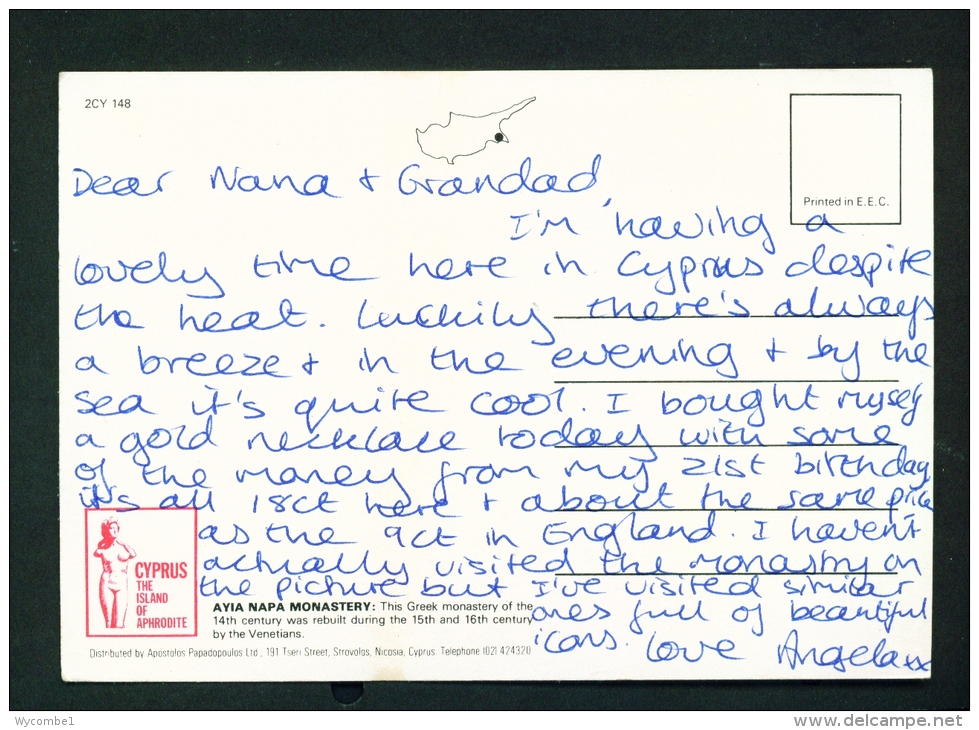 2CY 148
Printed in E.E.C.
Dear Nana + Grandad,
I'm having a
lovely time here in Cyprus despite
the heat. Luckily there's always
a breeze + in the evening + by the
sea it's quite cool. I bought myself
a gold necklace today with some
of the money from my 21st birthday
it's all 18ct here + about the same price
as the 9ct in England. I haven't
actually visited the monastry on
the picture but I've visited similar
ones full of beautiful
icons. Love Angela xx
CYPRUS
THE
ISLAND
OF
APHRODITE
AYIA NAPA MONASTERY: This Greek monastery of the
14th century was rebuilt during the 15th and 16th century
by the Venetians.
Distributed by Apostolos Papadopoulos Ltd., 191 Tseri Street, Strovolos, Nicosia, Cyprus. Telephone (02) 424320
Wycombe1
www.delcampe.net